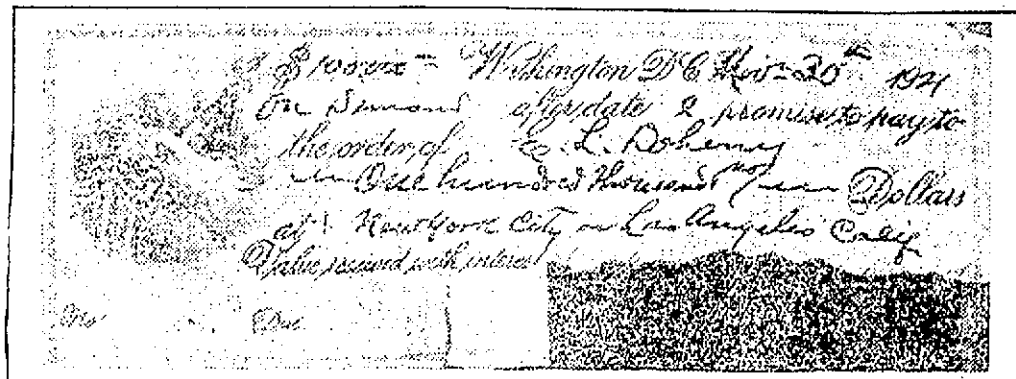 $100000 – Washington D C Nov– 30th 1921
On Demand after date I promise to pay to
the order of E. L. Doheny
One hundred thousand no/ Dollars
at New York City or Los Angeles Calif
Value received with interest
No Due